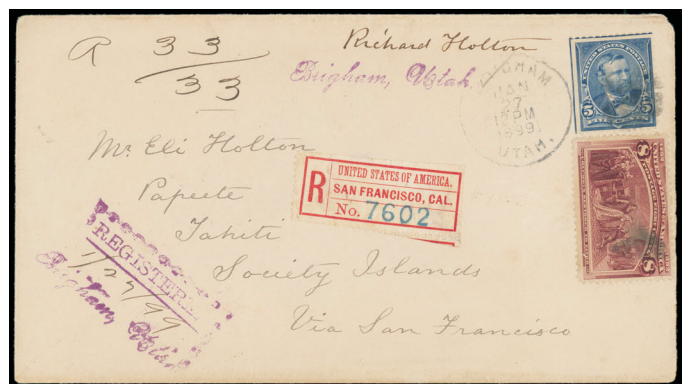 R 33
33
Richard Holton
Brigham, Utah.
BRIGHAM
JAN
27
PM
1899
UTAH.
5 5
Mr Eli Holton
Papeete
Tahiti
Society Islands
Via San Francisco
R
UNITED STATES OF AMERICA.
SAN FRANCISCO, CAL.
No. 7602
REGISTERED
1/27/99
Brigham, Utah
8 8